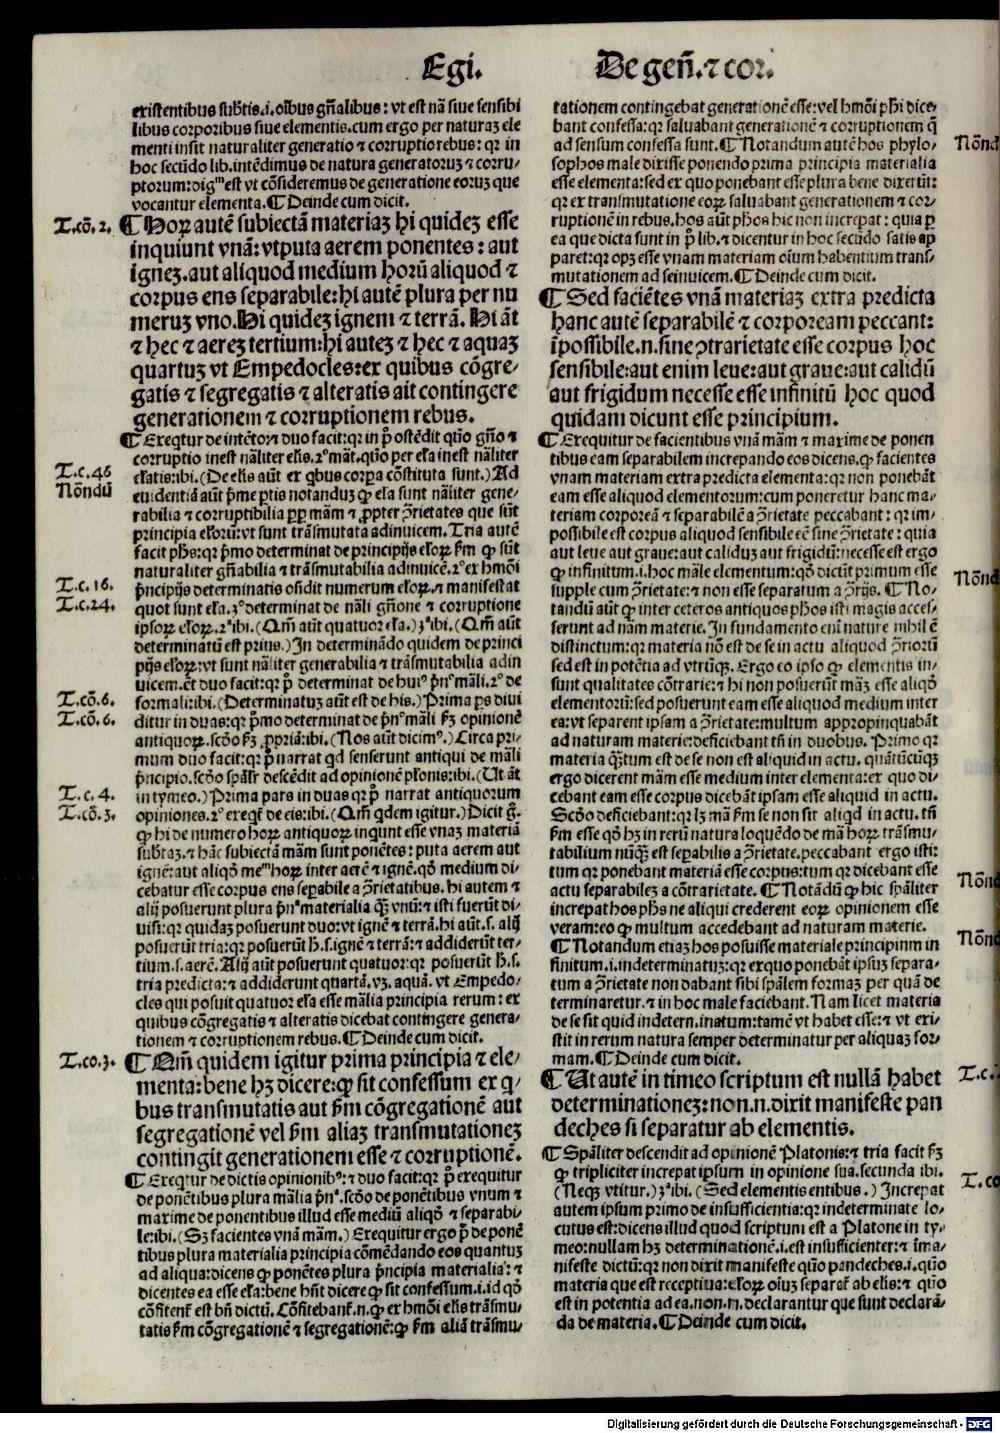 Egi. De geñ. ⁊ cor.
existentibus subtis .i. oĩbus gñalibus: vt est nã siue sensibi
libus corporibus siue elementis. cum ergo per naturaʒ ele
menti insit naturaliter generatio ⁊ corruptio rebus: qꝛ in
hoc secũdo lib. intẽdimus de natura generatoruʒ ⁊ corru-
ptorum: digᵐ est vt cõsideremus de generatione eoruʒ que
vocantur elementa. ¶ Deinde cum dicit.
T.cõ.2.
¶ Hoꝝ autẽ subiectã materiaʒ hi quideʒ esse
inquiunt vnã: vtputa aerem ponentes: aut
igneʒ. aut aliquod medium horũ aliquod ⁊
corpus ens separabile: hi autẽ plura per nu
meruʒ vno. Hi quideʒ ignem ⁊ terrã. Hi ãt
⁊ hec ⁊ aereʒ tertium: hi auteʒ ⁊ hec ⁊ aquaʒ
quartuʒ vt Empedocles: ex quibus cõgre-
gatis ⁊ segregatis ⁊ alteratis ait contingere
generationem ⁊ corruptionem rebus.
¶ Exeqtur de intẽto: ⁊ duo facit: qꝛ in p̃ ostẽdit quõ gñõ ⁊
corruptio inest nãliter elis. 2º mãt. quõ per ela inest nãliter
T.c.46
elatis: ibi. (De elis aũt ex qbus corpa cõstituta sunt.) Ad
Nõndũ
euidentiã aũt pme ptis notanduʒ ꝙ ela sunt nãliter gene-
rabilia ⁊ corruptibilia ppꝛ mãm ⁊ ꝓpter ꝯ̃rietates que sũt
principia eloꝝ: vt sunt trãsmutata adinuicem. Tria autẽ
facit phs: qꝛ p̃mo determinat de principijs eloꝝ fm ꝙ sũt
naturaliter gñabilia ⁊ trãsmutabilia adinuicẽ. 2º ex hmõi
T.c.16.
p̃ncipijs determinatis oñdit numerum eloꝝ. ⁊ manifestat
T.c.24.
quot sunt ela. 3º determinat de nãli gñone ⁊ corruptione
ipsoꝝ eloꝝ. 2ª ibi. (Qm̃ aũt quatuor ela.) 3ª ibi. (Qm̃ aũt
determinatũ est prius.) In determinãdo quidem de princi
pijs eloꝝ: vt sunt nãliter generabilia ⁊ trãsmutabilia adin
uicem. ẽt duo facit: qꝛ p̃ determinat de huiº p̃nº mãli. 2º de
T.cõ.6.
formali: ibi. (Determinatuʒ aũt est de his.) Prima ps diui
T.cõ.6.
ditur in duas: qꝛ p̃mo determinat de p̃nº mãli fʒ opinionẽ
antiquoꝝ. scõo fʒ ꝓpriã: ibi. (Nos aũt dicimꝰ.) Circa pri-
mum duo facit: qꝛ p̃ narrat qd senserunt antiqui de mãli
p̃ncipio. scõo spãlr descẽdit ad opinionẽ pl̃onis: ibi. (Ut ãt
T.c.4.
in tymeo.) Prima pars in duas qꝛ p̃ narrat antiquorum
T.cõ.3.
opiniones. 2º exeqr̃ de eis: ibi. (Qm̃ qdem igitur.) Dicit g̃.
ꝙ hi de numero hoꝝ antiquoꝝ inqunt esse vnaʒ materiã
subtaʒ. ⁊ hãc subiectã mãm sunt ponẽtes: puta aerem aut
ignẽ: aut aliqõ meᵐ hoꝝ inter aerẽ ⁊ ignẽ. qõ medium di-
cebatur esse corpus ens sepabile a ꝯ̃rietatibus. hi autem ⁊
alij posuerunt plura p̃nª materialia qʒ vnũ: ⁊ isti fuerũt di-
uisi: qꝛ quidaʒ posuerunt duo: vt ignẽ ⁊ terrã. hi aũt .s. alij
posuerũt tria: qꝛ posuerũt h̃. s. ignẽ ⁊ terrã: ⁊ addiderũt ter-
tium .s. aerẽ. Alij aũt posuerunt quatuor: qꝛ posuerũt h̃. s.
tria predicta: ⁊ addiderunt quartã. vʒ. aquã. vt Empedo-
cles qui posuit quatuor ela esse mãlia principia rerum: ex
quibus cõgregatis ⁊ alteratis dicebat contingere genera-
tionem ⁊ corruptionem rebus. ¶ Deinde cum dicit.
T.co.3.
¶ Qm̃ quidem igitur prima principia ⁊ ele-
menta: bene hʒ dicere: ꝙ sit confessum ex q̃-
bus transmutatis aut fm cõgregationẽ aut
segregationẽ vel fm aliaʒ transmutationeʒ
contingit generationem esse ⁊ corruptionẽ.
¶ Exeqtur de dictis opinionibꝰ: ⁊ duo facit: qꝛ p̃ exequitur
de ponẽtibus plura mãlia p̃nª. scõo de ponẽtibus vnum ⁊
maxime de ponentibus illud esse mediũ aliqõ ⁊ separabi-
le: ibi. (Sʒ facientes vnã mãm.) Exequitur ergo p̃ de ponẽ
tibus plura materialia principia cõmẽdando eos quantuʒ
ad aliqua: dicens ꝙ ponẽtes plura p̃ncipia materialia: ⁊
dicentes ea esse ela: bene hñt dicere ꝙ sit confessum .i. id qõ
cõfitent̃ est bñ dictũ. Cõfitebant̃ .n. ꝙ ex hmõi elis trãsmu-
tatis fm cõgregationẽ ⁊ segregationẽ: ꝙ fm aliã trãsmu-
tationem contingebat generationẽ esse: vel hmõi phi dice-
bant confessa: qꝛ saluabant generationẽ ⁊ corruptionem q̃
ad sensum confessa sunt. ¶ Notandum autẽ hos phylo-
Nõnd
sophos male dixisse ponendo prima principia materialia
esse elementa: sed ex quo ponebant esse plura bene dixerũt:
qꝛ ex transmutatione eoꝝ saluabant generationem ⁊ cor-
ruptionẽ in rebus. hos aũt phos hic non increpat: quia p
ea que dicta sunt in p̃ lib. ⁊ dicentur in hoc secũdo satis ap
paret: qꝛ opʒ esse vnam materiam oĩum habentium trans-
mutationem ad seinuicem. ¶ Deinde cum dicit.
¶ Sed faciẽtes vnã materiaʒ extra predicta
hanc autẽ separabilẽ ⁊ corpoream peccant:
ĩpossibile .n. sine ꝯtrarietate esse corpus hoc
sensibile: aut enim leue: aut graue: aut calidũ
aut frigidum necesse esse infinitũ hoc quod
quidam dicunt esse principium.
¶ Exequitur de facientibus vnã mãm ⁊ maxime de ponen
tibus eam separabilem increpando eos dicens, ꝙ facientes
vnam materiam extra predicta elementa: qꝛ non ponebãt
eam esse aliquod elementorum: cum poneretur hanc ma-
teriam corporeã ⁊ separabilẽ a ꝯ̃rietate peccabant: qꝛ im-
possibile est corpus aliquod sensibile eẽ sine ꝯ̃rietate: quia
aut leue aut graue: aut caliduʒ aut frigidũ: necesse est ergo
ꝙ infinitum .i. hoc mãle elementum: qõ dicũt primum esse
Nõnd
supple cum ꝯ̃rietate: ⁊ non esse separatum a ꝯ̃rijs. ¶ No-
tandũ aũt ꝙ inter ceteros antiquos phos isti magis acces-
serunt ad nãm materie. In fundamento eni nature nihil ẽ
distinctum: qꝛ materia nõ est de se in actu aliquod ꝯ̃rioru
sed est in potẽtia ad vtrũqʒ. Ergo eo ipso ꝙ elementis in-
sunt qualitates cõtrarie: ⁊ hi non posuerũt mãʒ esse aliqõ
elementorũ: sed posuerunt eam esse aliquod medium inter
ea: vt separent ipsam a ꝯ̃rietate: multum appropinquabãt
ad naturam materie: deficiebant tñ in duobus. Primo qꝛ
materia qʒtum est de se non est aliquid in actu. quãtũcũqʒ
ergo dicerent mãm esse medium inter elementa: ex quo di-
cebant eam esse corpus dicebãt ipsam esse aliquid in actu.
Scõo deficiebant: qꝛ lʒ mã fm se non sit aliqd in actu. tñ
fm esse qõ hʒ in rerũ natura loquẽdo de mã hoꝝ trãsmu-
tabilium nũqʒ est sepabilis a ꝯ̃rietate. peccabant ergo isti:
tum qꝛ ponebant materiã esse corpus: tum qꝛ dicebant esse
actu separabileʒ a cõtrarietate. ¶ Notãdũ ꝙ hic spãliter
Nõnd
increpat hos phos ne aliqui crederent eoꝝ opinionem esse
veram: eo ꝙ multum accedebant ad naturam materie.
Nõnd
¶ Notandum etiaʒ hos posuisse materiale principium in
finitum .i. indeterminatuʒ: qꝛ exquo ponebãt ipsuʒ separa-
tum a ꝯ̃rietate non dabant sibi spãlem formaʒ per quã de
terminaretur. ⁊ in hoc male faciebant. Nam licet materia
de se sit quid indeterminatum: tamẽ vt habet esse: ⁊ vt exi-
stit in rerum natura semper determinatur per aliquaʒ for-
mam. ¶ Deinde cum dicit.
¶ Ut autẽ in timeo scriptum est nullã habet
T.c.
determinationeʒ: non .n. dixit manifeste pan
deches si separatur ab elementis.
¶ Spãliter descendit ad opinionẽ Platonis: ⁊ tria facit fʒ
ꝙ tripliciter increpat ipsum in opinione sua. secunda ibi.
T.co
(Neqʒ vtitur.) 3ª ibi. (Sed elementis entibus.) Increpat
autem ipsum primo de insufficientia: qꝛ indeterminate lo-
cutus est: dicens illud quod scriptum est a Platone in ty-
meo: nullam hʒ determinationẽ .i. est insufficienter: ⁊ ĩma-
nifeste dictũ: qꝛ non dixit manifeste quõ pandeches .i. quõ
materia que est receptiua: eloꝝ oĩuʒ separet̃ ab elis: ⁊ quõ
est in potentia ad ea. non .n. declarantur que sunt declarã-
da de materia. ¶ Deinde cum dicit.
Digitalisierung gefördert durch die Deutsche Forschungsgemeinschaft - DFG